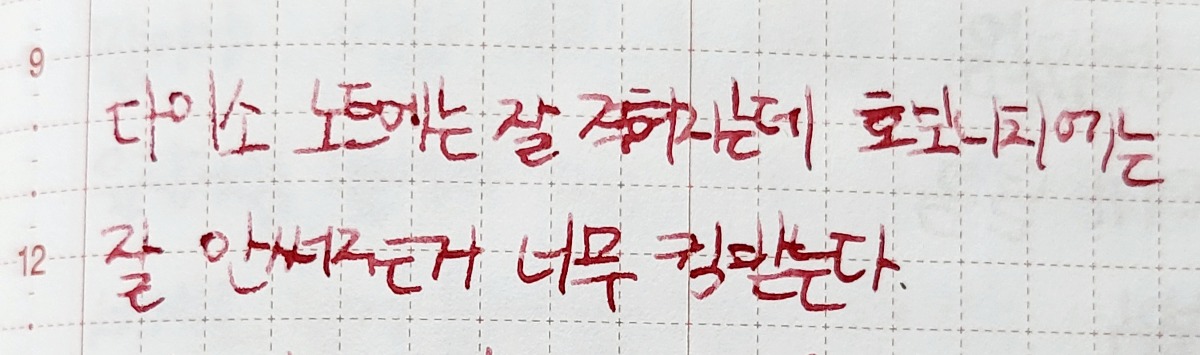 9
다이소 노트에는 잘 적혀지는데 호보니치에는
12
잘 안써지는거 너무 킹받는다.